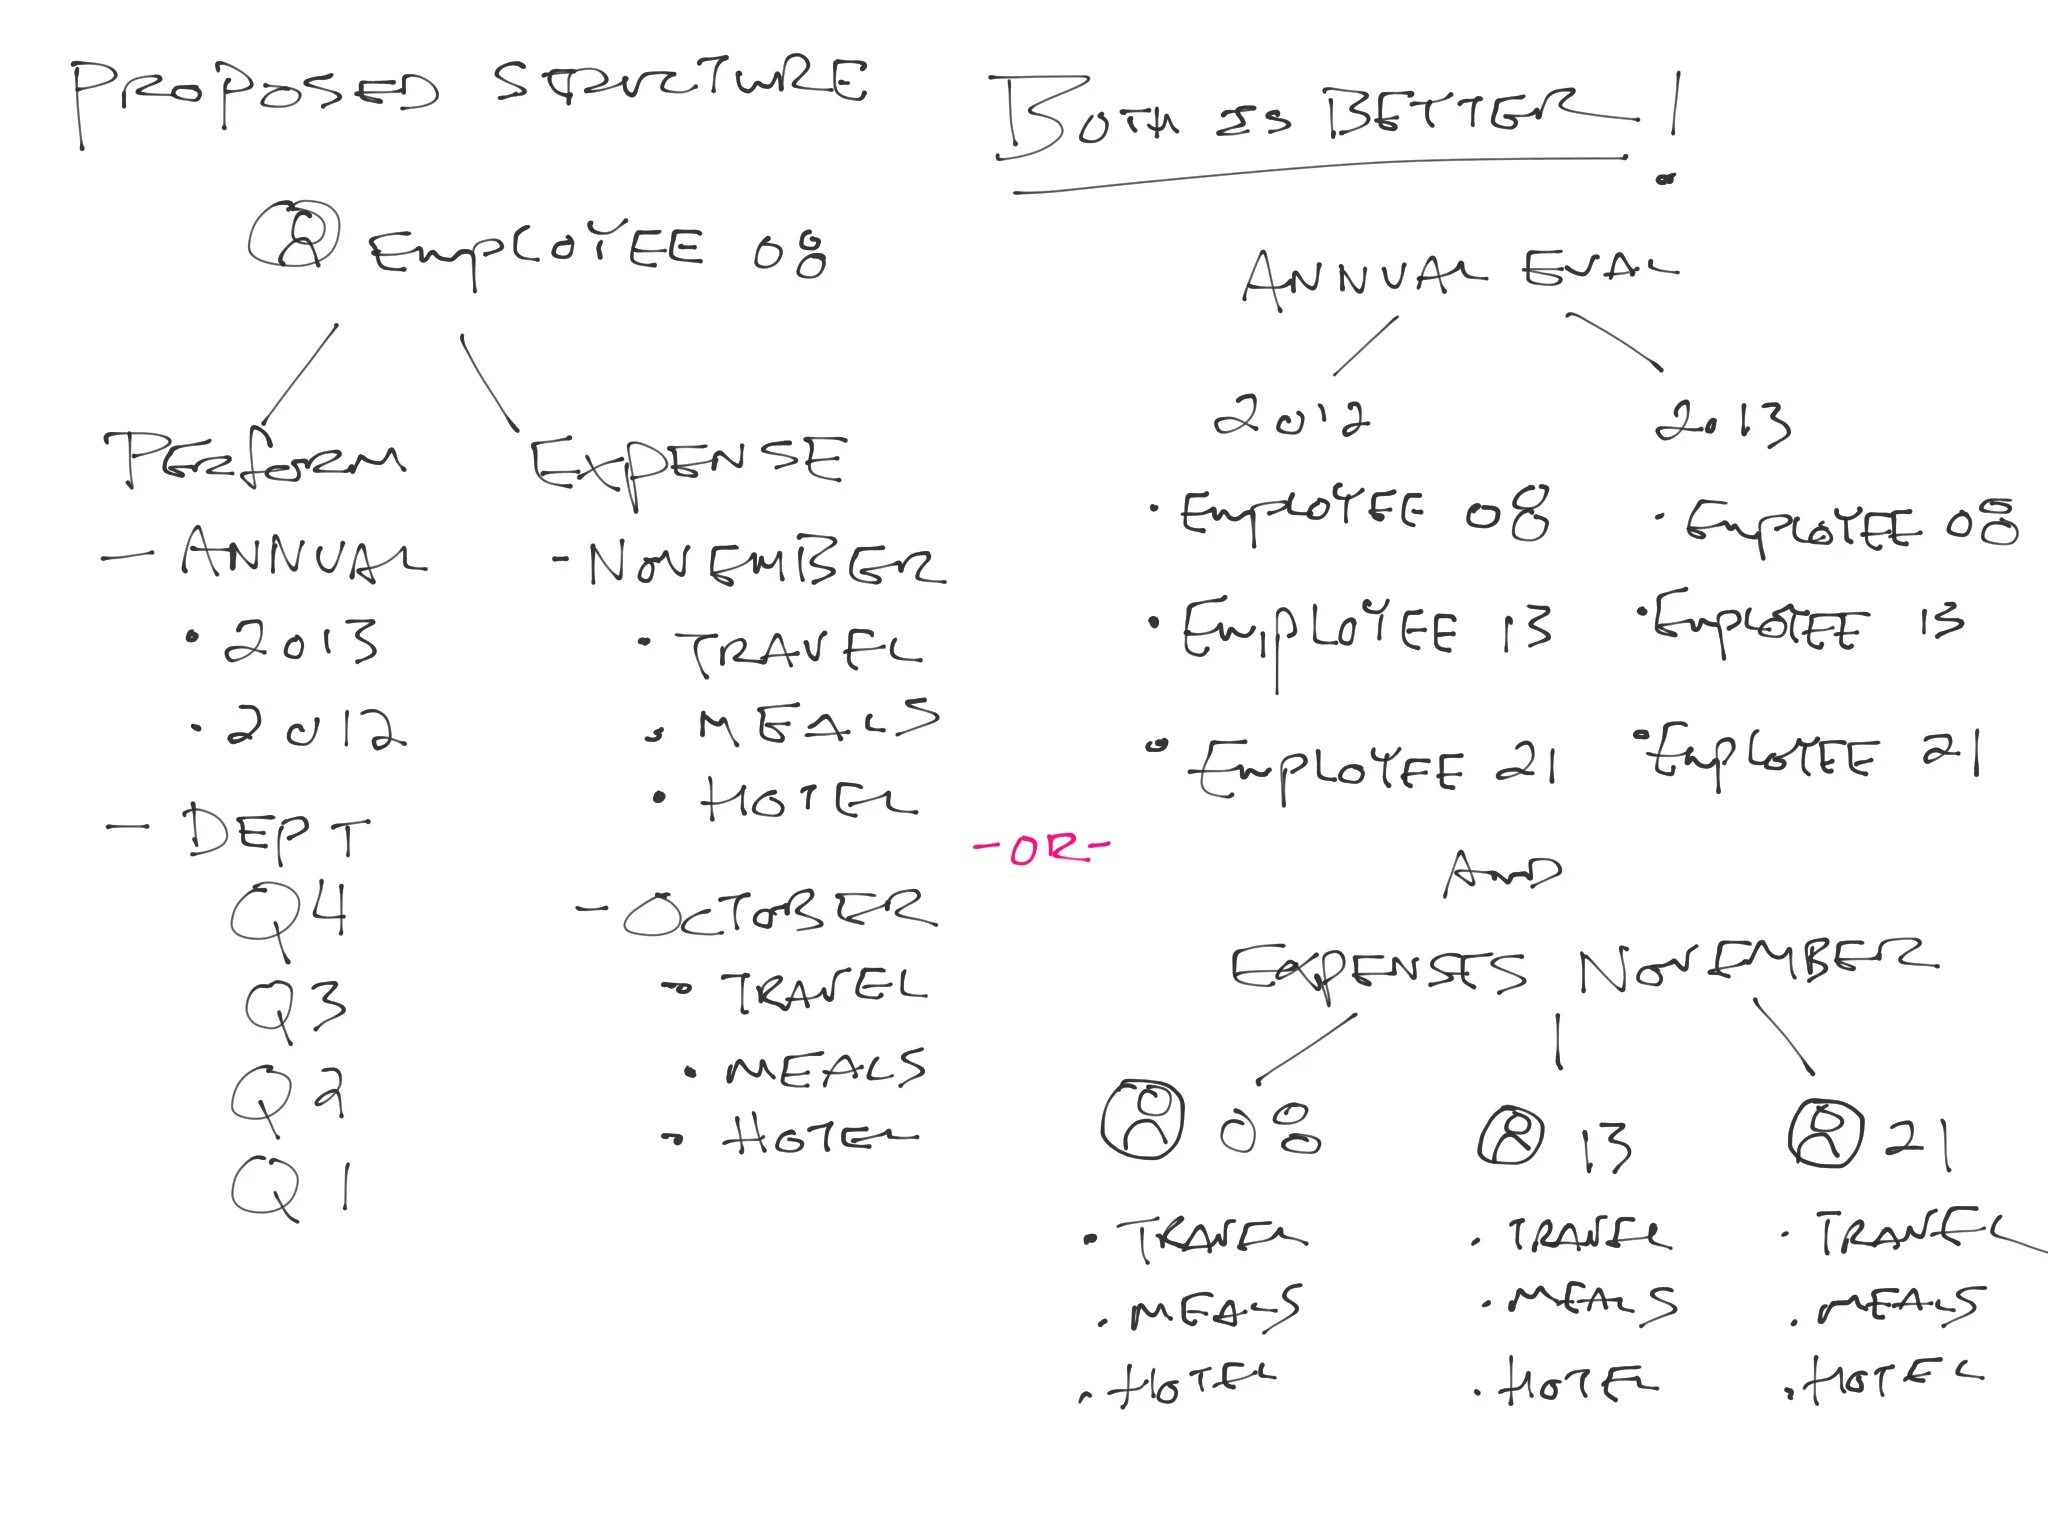 PROPOSED STRUCTURE
EMPLOYEE 08
PERFORM
- ANNUAL
• 2013
• 2012
- DEPT
Q4
Q3
Q2
Q1
EXPENSE
- NOVEMBER
• TRAVEL
• MEALS
• HOTEL
- OCTOBER
• TRAVEL
• MEALS
• HOTEL
-OR-
BOTH IS BETTER!
ANNUAL EVAL
2012
• EMPLOYEE 08
• EMPLOYEE 13
• EMPLOYEE 21
2013
• EMPLOYEE 08
• EMPLOYEE 13
• EMPLOYEE 21
AND
EXPENSES NOVEMBER
08
• TRAVEL
• MEALS
• HOTEL
13
• TRAVEL
• MEALS
• HOTEL
21
• TRAVEL
• MEALS
• HOTEL